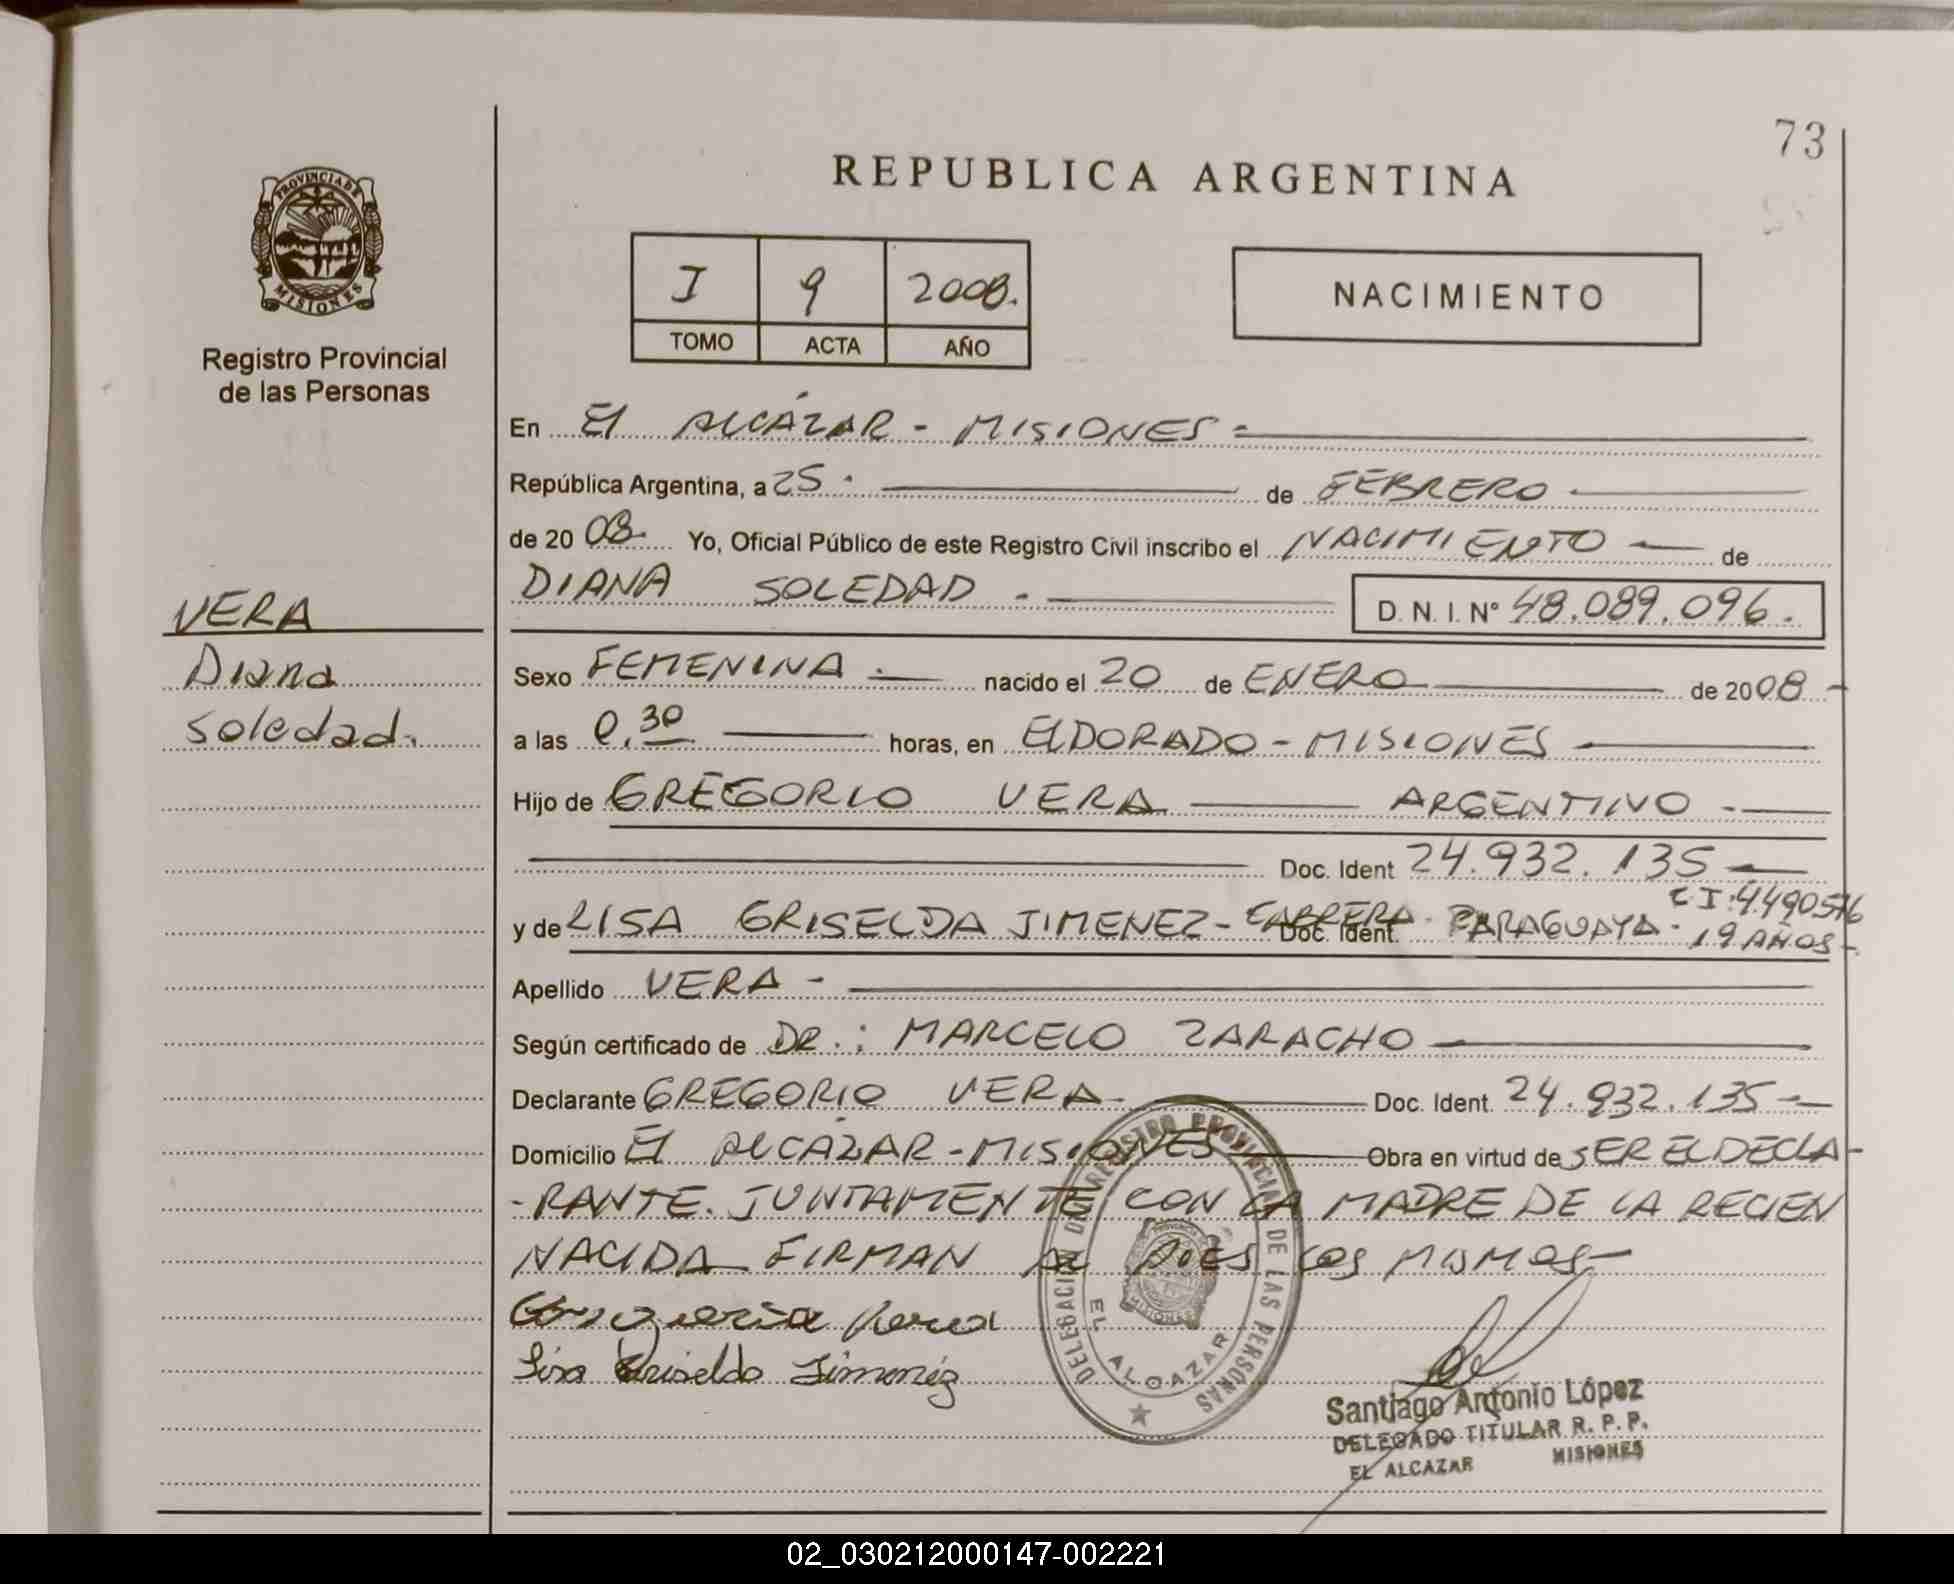 73
REPUBLICA ARGENTINA
PROVINCIA DE
MISIONES
Registro Provincial
de las Personas
I 9 2008.
TOMO ACTA AÑO
NACIMIENTO
En El ALCÁZAR - MISIONES -
República Argentina, a 25 . de FEBRERO
de 20 08. Yo, Oficial Público de este Registro Civil inscribo el NACIMIENTO de
DIANA SOLEDAD . D. N. I. Nº 48.089.096.
VERA
Diana
soledad.
Sexo FEMENINA . nacido el 20 de ENERO de 2008 -
a las 0.30 horas, en ELDORADO - MISIONES
Hijo de GREGORIO VERA ARGENTINO -
Doc. Ident 24.932.135
C.I: 4490576
y de LISA GRISELDA JIMENEZ - CABRERA - Doc. Ident. PARAGUAYA - 19 AÑOS -
Apellido VERA -
Según certificado de DR.: MARCELO ZARACHO
Declarante GREGORIO VERA - Doc. Ident. 24.932.135 -
Domicilio El ALCÁZAR - MISIONES Obra en virtud de SER EL DECLA-
-RANTE. JUNTAMENTE CON LA MADRE DE LA RECIEN
NACIDA FIRMAN AL PIES LOS MISMOS -
Lisa Griselda Jimenez
DELEGACION DEL REGISTRO PROVINCIAL DE LAS PERSONAS
EL ALCAZAR
Santiago Antonio López
DELEGADO TITULAR R. P. P.
EL ALCAZAR MISIONES
02_030212000147-002221